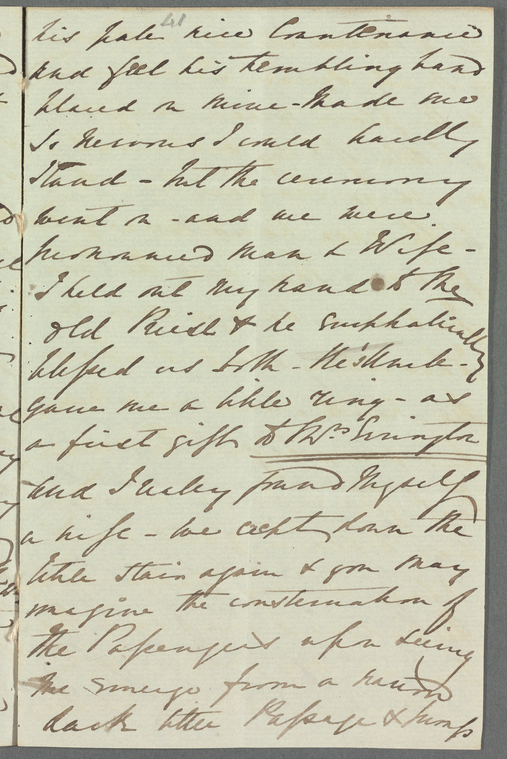 41
his pale nice Countenance
and feel his trembling hand
placed on mine - Made me
so nervous I could hardly
stand - but the ceremony
went on - and we were
pronounced man & Wife -
I held out my hand to the
old Priest & he emphatically
blessed us both -
gave me a little ring - as
a first gift to Mrs Errington
and I realy found Myself
a wife - we crept down the
little stair again & you may
imagine the consternation of
the Passengers upon seeing
me emerge from a
dark little Passage & jump